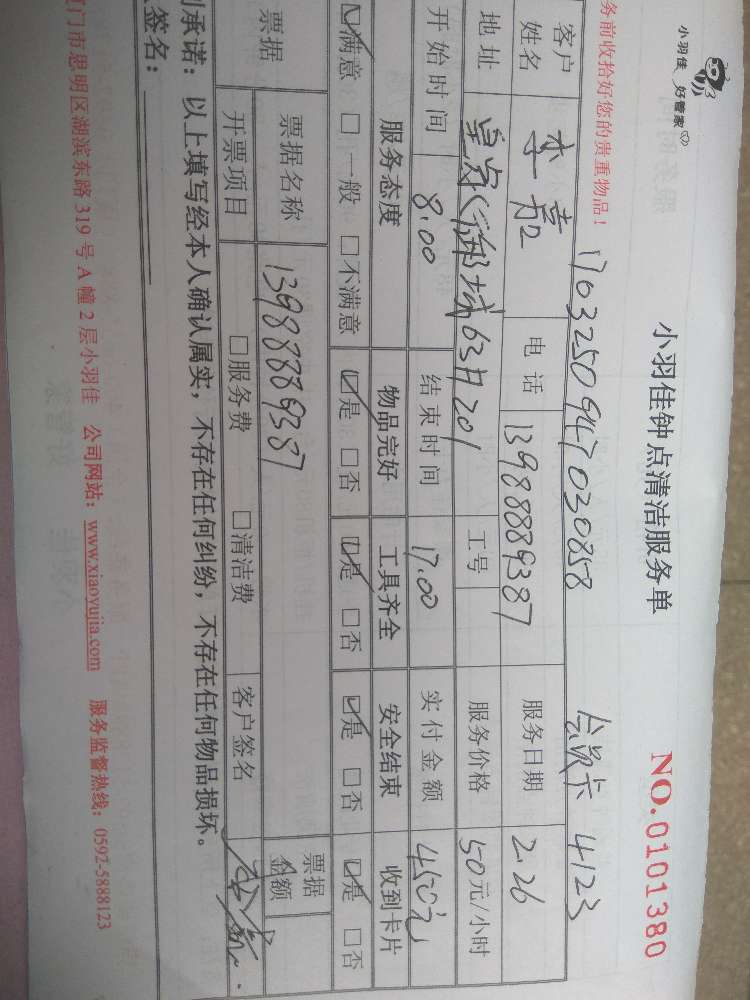 小羽佳 好管家
小羽佳钟点清洁服务单
NO.0101380
务前收拾好您的贵重物品！
1703250947030858 会员卡 4123
客户姓名 李嘉 电话 13988889387 服务日期 2.26
地址 63月201 工号 服务价格 50元/小时
开始时间 8.00 结束时间 17.00 实付金额 450元
服务态度 物品完好 工具齐全 安全结束 收到卡片
☑满意 □一般 □不满意 ☑是 □否 ☑是 □否 ☑是 □否 ☑是 □否
票据 票据名称 13988889387 票据金额
开票项目 □服务费 □清洁费 客户签名
承诺：以上填写经本人确认属实，不存在任何纠纷，不存在任何物品损坏。
签名：
门市思明区湖滨东路319号A幢2层小羽佳 公司网站：www.xiaoyujia.com 服务监督热线：0592-5888123